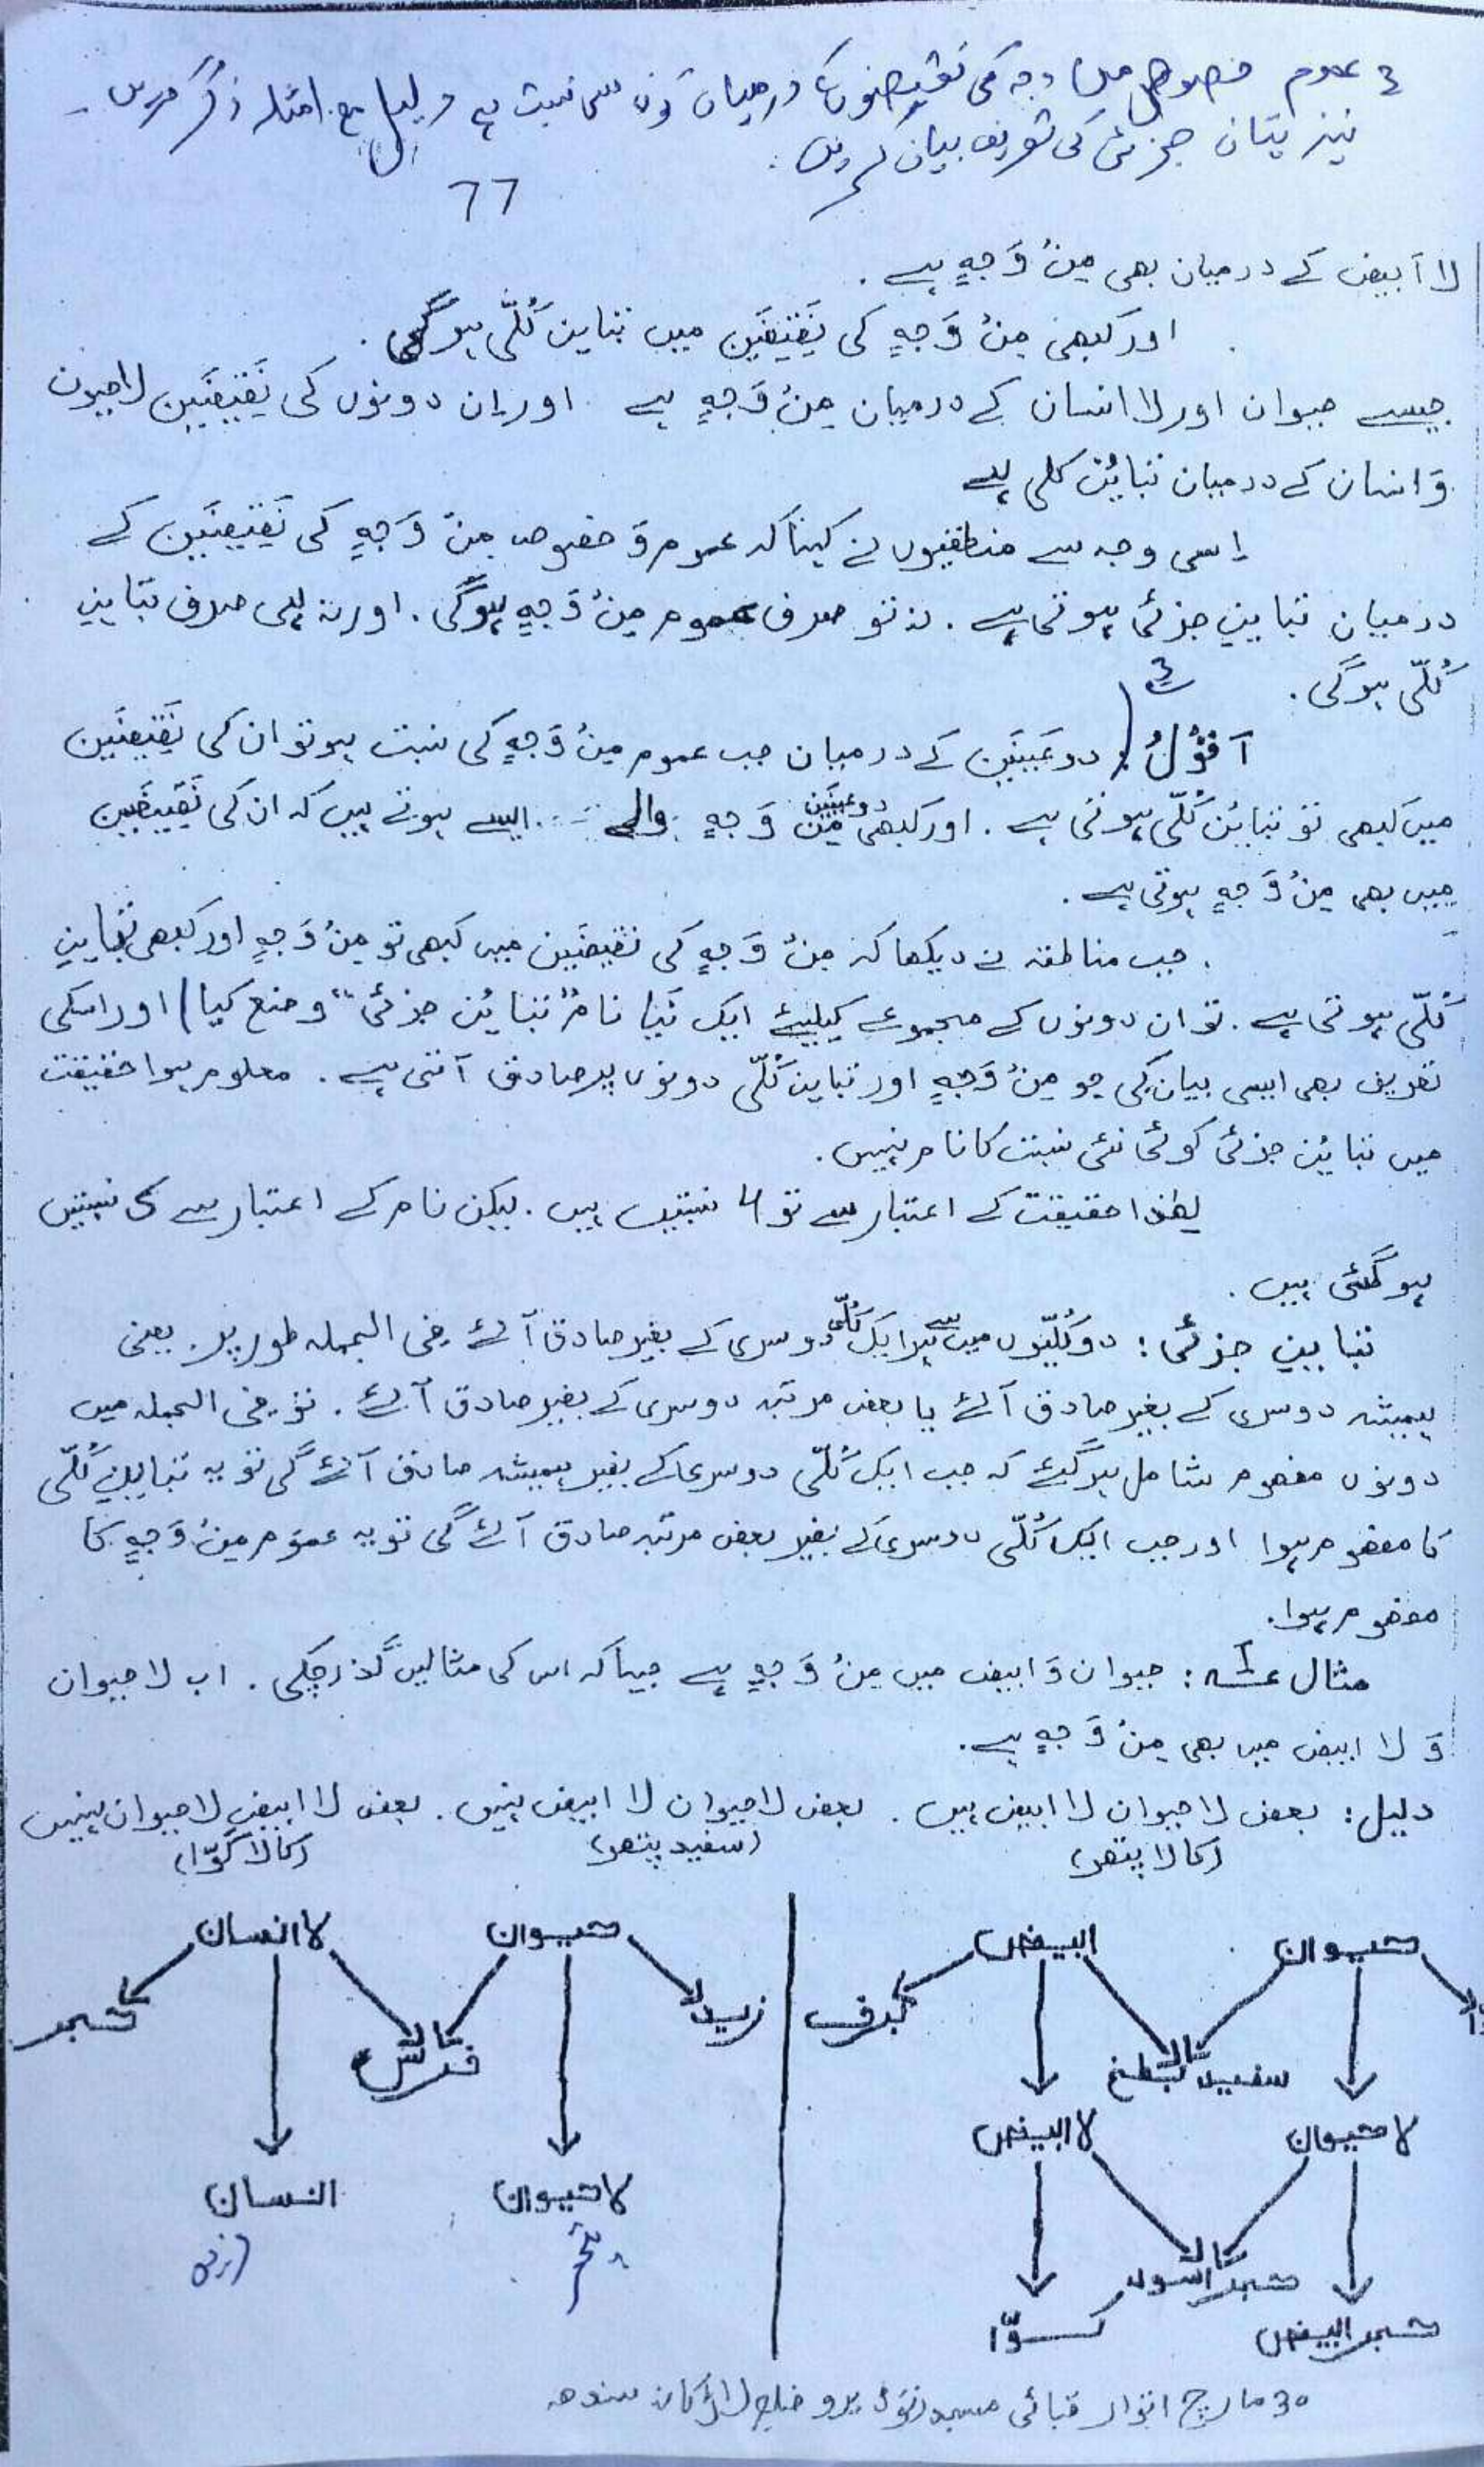 3 عموم خصوص من وجہ کی نقیضوں کے درمیان کون سی نسبت ہے دلیل مع امثلہ ذکر کریں۔
نیز تباین جزئی کی تعریف بیان کریں۔
77
لا اَبیض کے درمیان بھی مِنْ وَجہٍ ہے۔
اور کبھی مِنْ وَجہٍ کی نَقیضَین میں تباین کُلّی ہوگی۔
جیسے حیوان اور لا انسان کے درمیان مِنْ وَجہٍ ہے۔ اور اِن دونوں کی نَقیضَین لاحیون
وَ انسان کے درمیان تبایُن کلی ہے
اِسی وجہ سے منطقیوں نے کہا کہ عموم وَ خصوص مِنْ وَجہٍ کی نَقیضَین کے
درمیان تباینِ جزئی ہوتی ہے۔ نہ تو صرف عموم مِنْ وَجہٍ ہوگی۔ اور نہ ہی صرف تباینِ
کُلّی ہوگی۔ 3
اَقُوْلُ: دو عَینَین کے درمیان جب عموم مِنْ وَجہٍ کی نسبت ہو تو ان کی نَقیضَین
میں کبھی تو تبایُن کُلّی ہوتی ہے۔ اور کبھی دو عینَین مِنْ وَجہٍ والے ایسے ہوتے ہیں کہ ان کی نَقیضَین
میں بھی مِنْ وَجہٍ ہوتی ہے۔
جب مناطقہ نے دیکھا کہ مِنْ وَجہٍ کی نقیضَین میں کبھی تو مِنْ وَجہٍ اور کبھی تباینِ
کُلّی ہوتی ہے۔ تو ان دونوں کے مجموعے کیلیئے ایک نَیا نام "تبایُن جزئی" وضع کیا) اور اسکی
تعریف بھی ایسی بیان کی جو مِنْ وَجہٍ اور تباین کُلّی دونوں پر صادق آتی ہے۔ معلوم ہوا حقیقت
میں تبایُن جزئی کوئی نئی نسبت کا نام نہیں۔
لھٰذا حقیقت کے اعتبار سے تو 4 نسبتیں ہیں۔ لیکن نام کے اعتبار سے 5 نسبتیں
ہو گئی ہیں۔
تباینِ جزئی: دو کُلّیّوں میں سے ہر ایک کُلّی دوسری کے بغیر صادق آئے فی الجملہ طور پر۔ یعنی
ہمیشہ دوسری کے بغیر صادق آئے یا بعض مرتبہ دوسری کے بغیر صادق آئے۔ تو فی الجملہ میں
دونوں مفھوم شامل ہوگئے کہ جب ایک کُلّی دوسری کے بغیر ہمیشہ صادق آئے گی تو یہ تباینِ کُلّی
کا مفھوم ہوا اور جب ایک کُلّی دوسری کے بغیر بعض مرتبہ صادق آئے گی تو یہ عموم مِنْ وَجہٍ کا
مفھوم ہوا۔
مثال ۱: حیوان وَ ابیض میں مِنْ وَجہٍ ہے جیسا کہ اس کی مثالیں گذر چکی۔ اب لا حیوان
وَ لا ابیض میں بھی مِنْ وَجہٍ ہے۔
دلیل: بعض لا حیوان لا ابیض ہیں۔ بعض لا حیوان لا ابیض نہیں۔ بعض لا ابیض لا حیوان نہیں
(کالا پتھر) (سفید پتھر) (کالا کوّا)
حیوان ابیض حیوان لا انسان
برف زید حجر
سفید بطخ فرس
لا حیوان لا ابیض لا حیوان انسان
حجر اسود
حجر ابیض کوّا
30 مارچ اتوار قبائی مسجد نوڈیرو ضلع لاڑکانہ سندھ